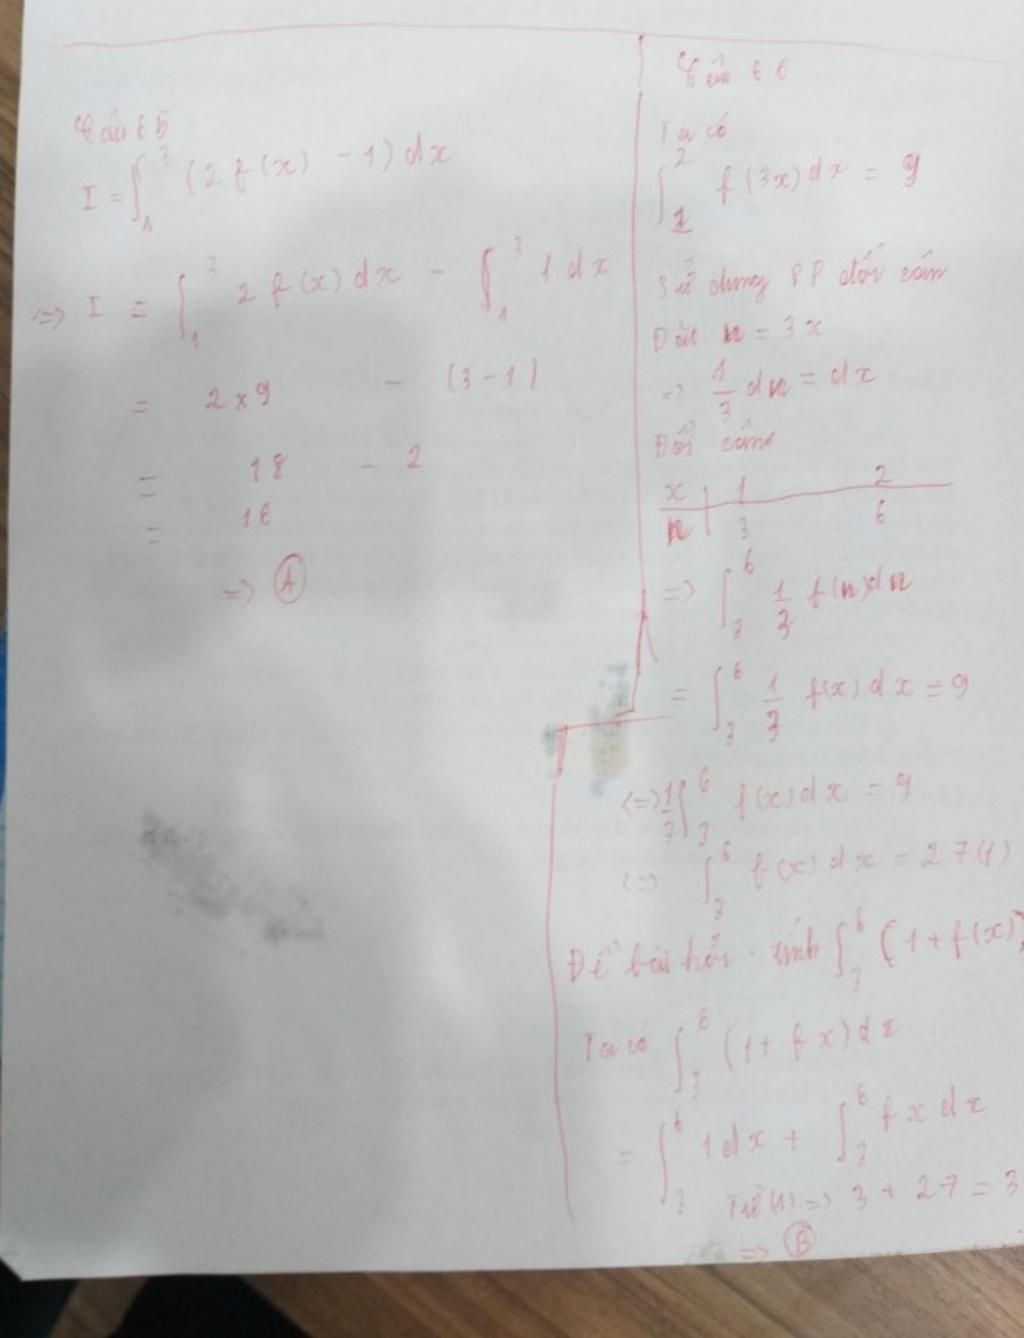 Câu 65
I = ∫₁³ (2f(x) - 1) dx
<=> I = ∫₁³ 2f(x) dx - ∫₁³ 1 dx
= 2 x 9 - (3-1)
= 18 - 2
= 16
=> A
Câu 66
Ta có
∫₁² f(3x) dx = 9
Sử dụng PP đổi cận
Đặt n = 3x
=> 1/3 dn = dx
Đổi cận
x | 1 2
n | 3 6
=> ∫₃⁶ 1/3 f(n) dn
= ∫₃⁶ 1/3 f(x) dx = 9
<=> 1/3 ∫₃⁶ f(x) dx = 9
<=> ∫₃⁶ f(x) dx = 27 (1)
Đề bài hỏi tính ∫₃⁶ (1 + f(x))
Ta có ∫₃⁶ (1 + f x) dx
= ∫₃⁶ 1 dx + ∫₃⁶ f x dx
Từ (1) => 3 + 27 = 3
=> B